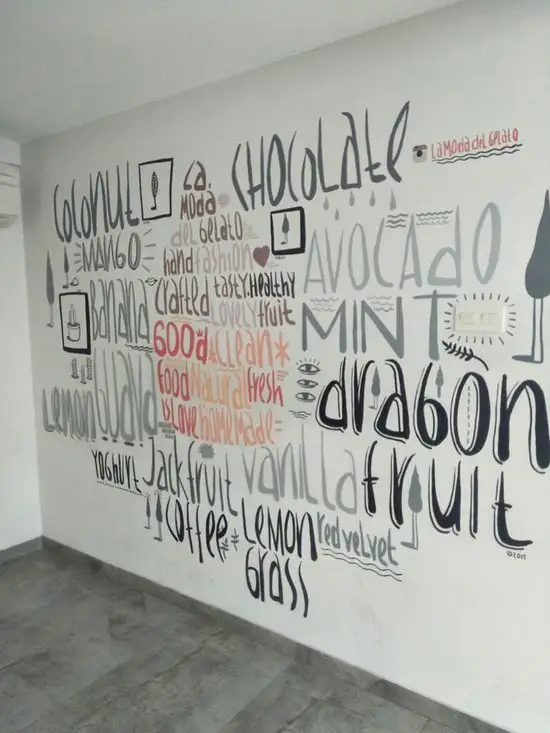 CHOCOLATE
LaModa del Gelato
COCONUT
La
Moda
del Gelato
MANGO
hand fashion
AVOCADO
BANANA
Crafted tasty. Healthy
Lovely fruit
MINT
GOOd CLEAN
LEMON
GUAVA
Food Natural fresh
is Love homeMade
dragon
fruit
YOGHURT
Jackfruit
vanilla
COFFEE
LEMON
GRASS
red velvet
©2015